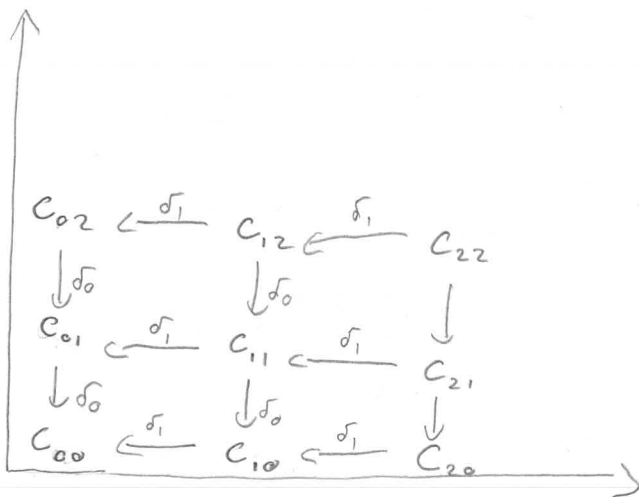 C₀₂ δ₁ C₁₂ δ₁ C₂₂
δ₀ δ₀
C₀₁ δ₁ C₁₁ δ₁ C₂₁
δ₀ δ₀
C₀₀ δ₁ C₁₀ δ₁ C₂₀